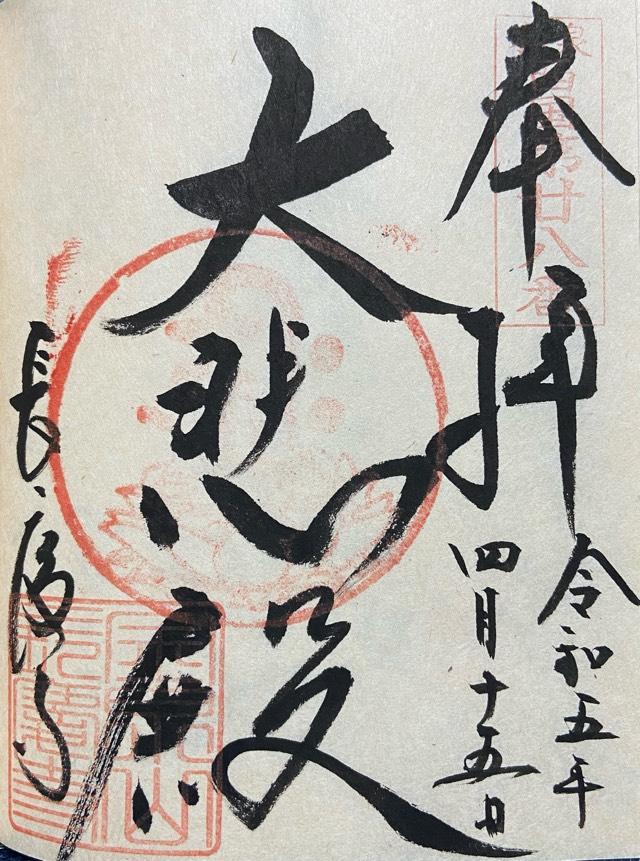 奉拝
第廿八番
令和五年
四月十五日
大悲殿